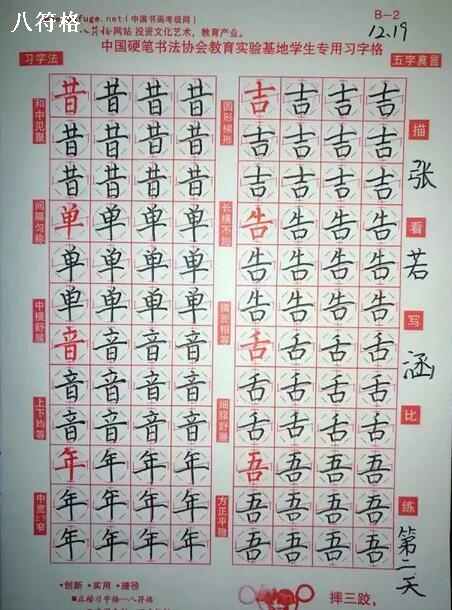 八符格
fuge.net(中国书画考级网)
八符格网站 投资文化艺术、教育产业。
B-2
12.19
中国硬笔书法协会教育实验基地学生专用习字格
习字法
五字真言
和中见聚
间隔匀称
中横舒展
上下均等
中宽边窄
昔昔昔昔
昔昔昔昔
昔昔昔昔
单单单单
单单单单
单单单单
音音音音
音音音音
音音音音
年年年年
年年年年
年年年年
圆形梯形
长横不短
横距相等
方正平稳
吉吉吉吉
吉吉吉吉
吉吉吉吉
告告告告
告告告告
告告告告
舌舌舌舌
舌舌舌舌
舌舌舌舌
吾吾吾吾
吾吾吾吾
吾吾吾吾
描
张
看
若
写
涵
比
练
第二天
•创新•实用•捷径
■正楷习字格—八符格
摔三跤,